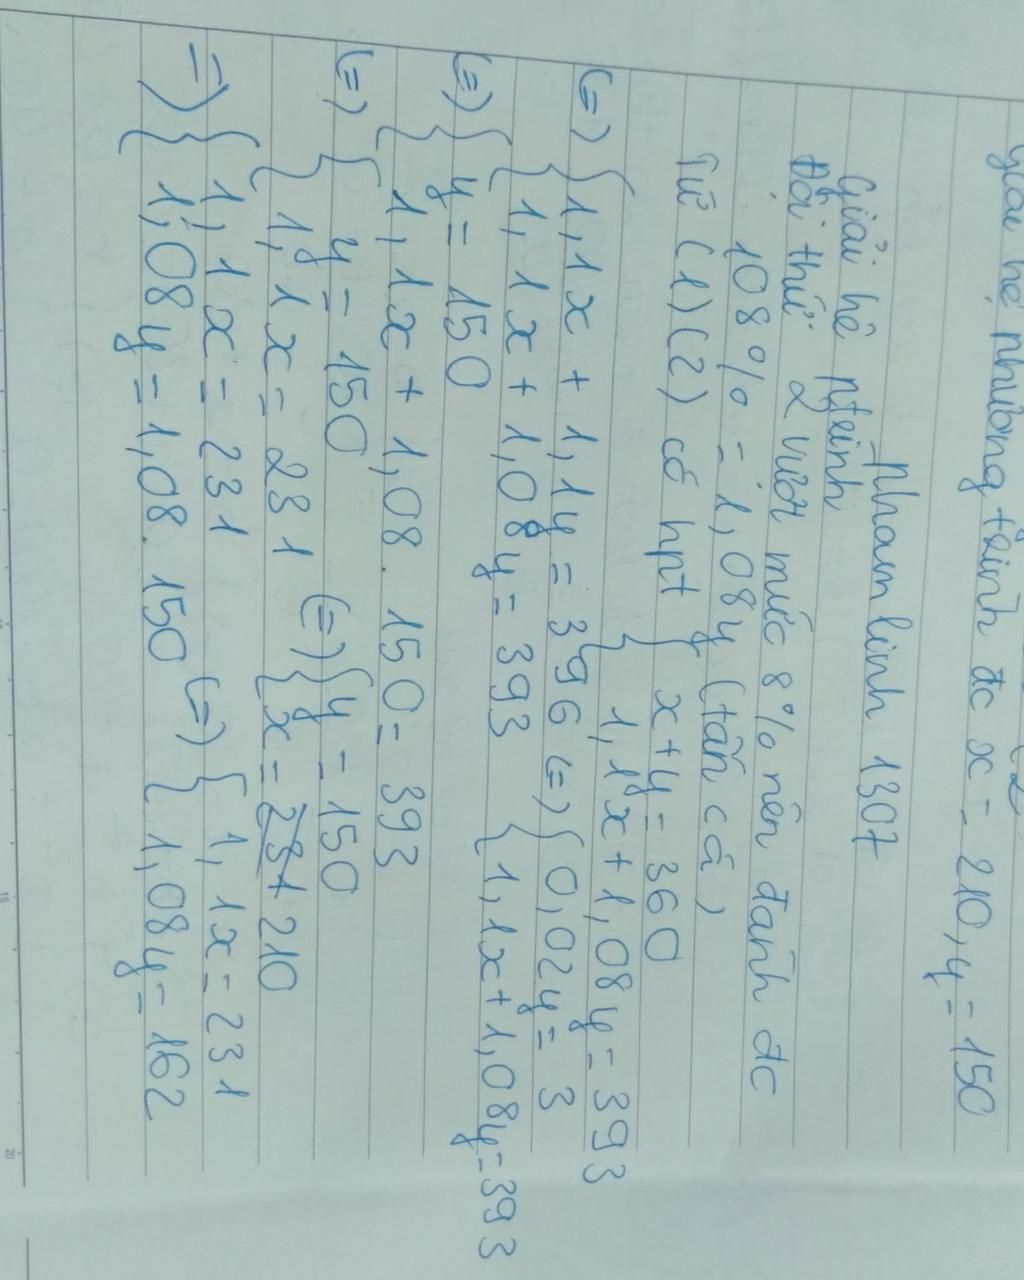 giải hệ phương trình đc x = 210, y = 150
phamlinh 1307
Giải hệ ptrình
Đội thứ 2 vượt mức 8% nên đánh đc
108% = 1,08y (tấn cá)
Từ (1)(2) có hpt { x+y = 360
1,1x + 1,08y = 393
(=) { 1,1x + 1,1y = 396 (=) { 0,02y = 3
1,1x + 1,08y = 393 { 1,1x + 1,08y = 393
(=) { y = 150
1,1x + 1,08 . 150 = 393
(=) { y = 150 (=) { y = 150
1,1x = 231 x = 210
=) { 1,1x = 231 (=) { 1,1x = 231
1,08y = 1,08 . 150 1,08y = 162
15
20